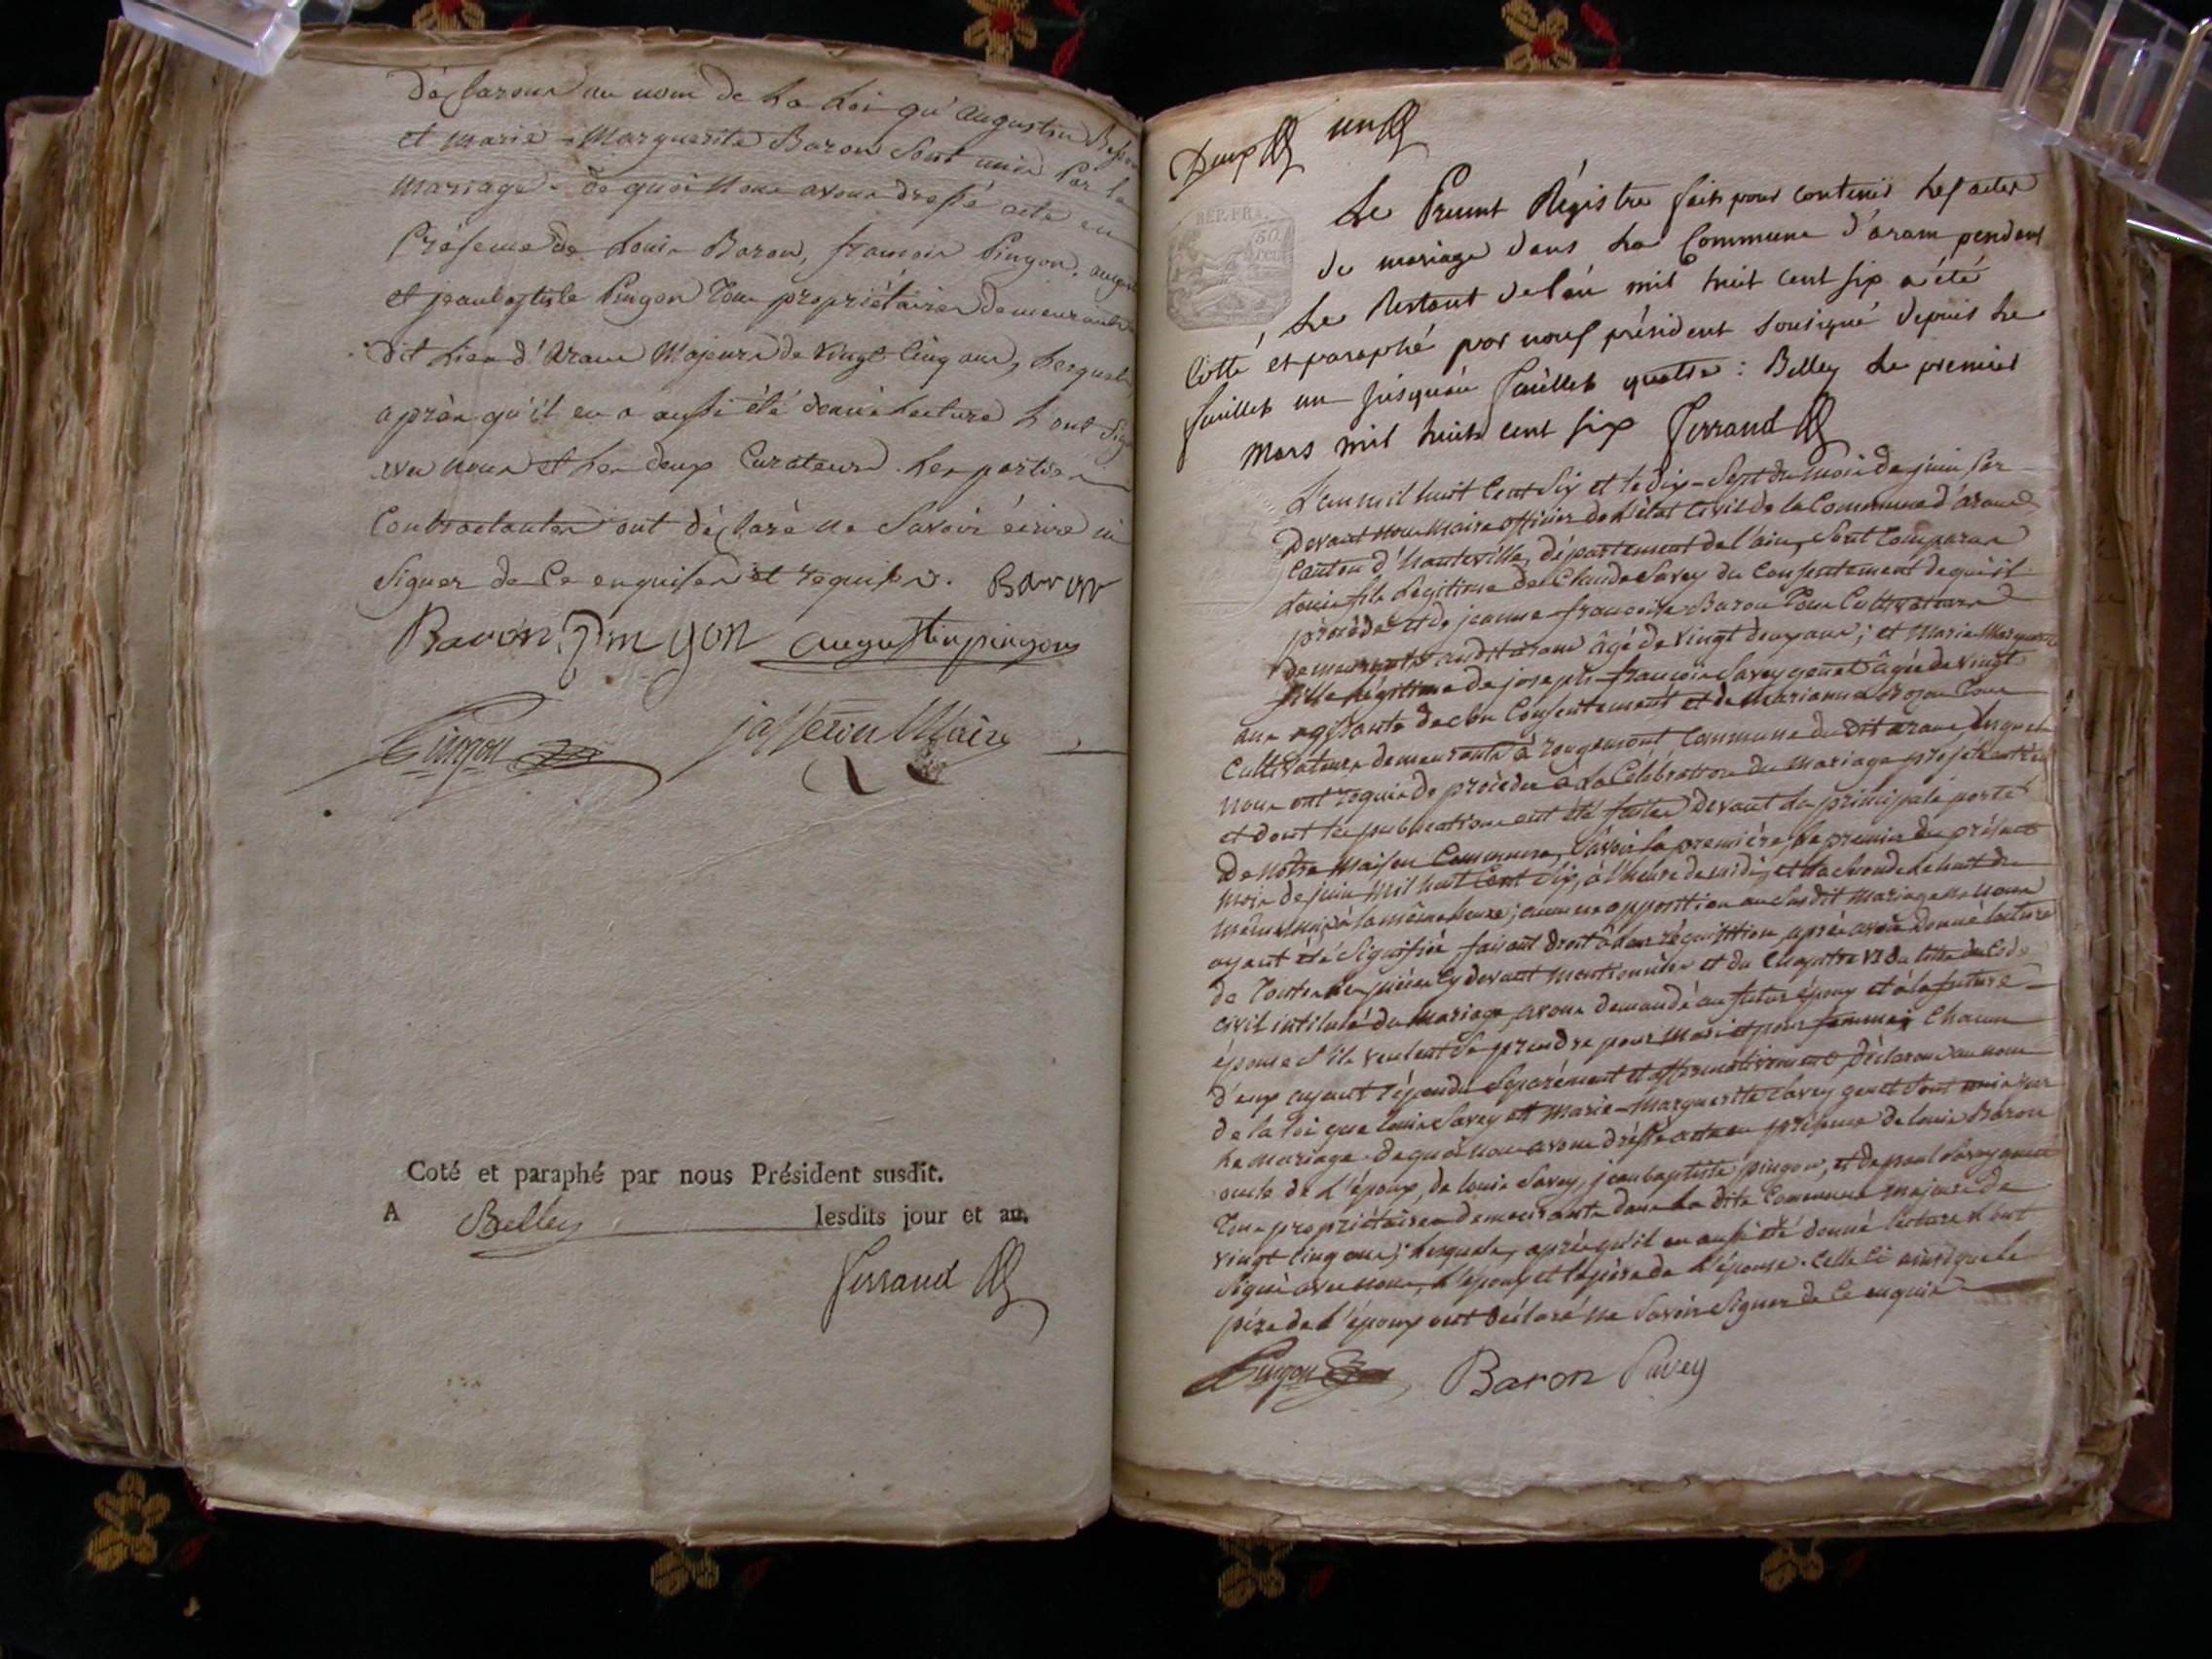 déclarons au nom de la Loi qu'augustin
et marie-Marguerite Baron sont unis par le
mariage. de quoi nous avons dressé acte en
présence de Louis Baron, françois Pingon, august
et jeanbaptiste Pingon tous propriétaires demeurants
dit lieu d'arane majeurs de vingt cinq ans, lesquels
après qu'il en a aussi été donné lecture l'ont signé
avec nous et les deux curateurs. les parties
Contractantes ont déclaré ne savoir écrire ni
signer de ce enquises et requises. Baron
Baron Pingon augustin pingon
Pingon jasseron Maire
Coté et paraphé par nous Président susdit.
A Belley lesdits jour et an.
Ferrand
Deux un
REP. FRA.
50
Le Present Régistre fait pour contenir les actes
de mariage dans la Commune d'aram pendant
Le Restant de l'an mil huit cent six a été
Cotté et paraphé par nous président soussigné depuis le
feuillet un jusqu'au feuillet quatre : Belley le premier
mars mil huit cent six Ferrand
L'an mil huit cent six et le dix-sept du mois de juin par
devant nous maire officier de l'état civil de la Commune d'arane
canton d'hauteville, département de l'ain, sont comparus
Louis fils légitime de Claude Savey du consentement de qui il
procède et de jeanne-françoise Baron tous cultivateurs
demeurants audit arane âgé de vingt deux ans ; et Marie Marguerite
fille légitime de joseph-françois Savey genet âgée de vingt
ans agissante de son consentement et de marianne tous
cultivateurs demeurants à rougemont commune du dit arane lesquels
nous ont requis de procéder à la célébration du mariage projeté entre
et dont les publications ont été faites devant la principale porte
de notre maison commune, savoir la première, le premier du présent
mois de juin mil huit cent six, à l'heure de midi, et la seconde le huit du
même mois à la même heure ; aucune opposition au susdit mariage ne nous
ayant été signifiée, faisant droit à leur réquisition, après avoir donné lecture
de toutes les pièces cy devant mentionnées et du chapitre VI du titre du Code
civil intitulé du mariage, avons demandé au futur époux et à la future
épouse s'ils veulent se prendre pour mari et pour femme ; chacun
d'eux ayant répondu séparément et affirmativement, déclarons au nom
de la loi que louis Savey et marie-Marguerite Savey genet sont unis par
le mariage. de quoi nous avons dressé acte en présence de louis Baron
oncle de l'époux, de louis Savey, jeanbaptiste pingon, et de paul Savey genet
tous propriétaires demeurants dans la dite Commune majeurs de
vingt cinq ans ; lesquels, après qu'il en a aussi été donné lecture l'ont
signé avec nous, l'époux et le père de l'épouse. celle ci ainsi que le
père de l'époux ont déclaré ne savoir signer de ce enquis
Pingon Baron Savey